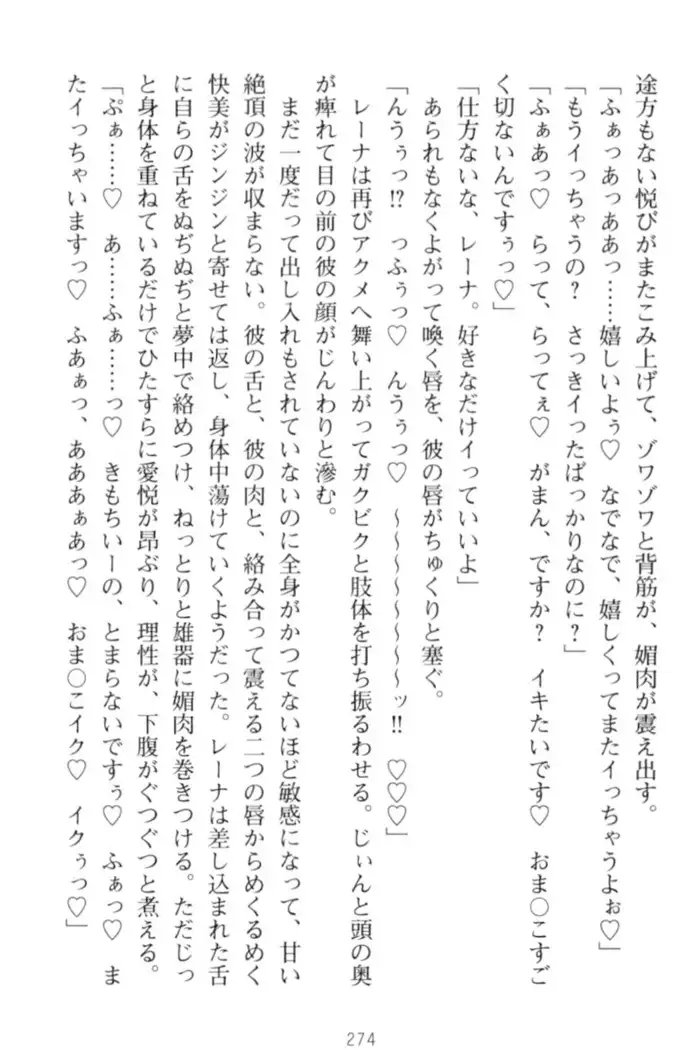 途方もない悦びがまたこみ上げて、ゾワゾワと背筋が、媚肉が震え出す。
「ふぁっあっああっ……嬉しいよぅ♡　なでなで、嬉しくってまたイっちゃうよぉ♡」
「もうイっちゃうの？　さっきイったばっかりなのに？」
「ふぁあっ♡　らって、らってぇ♡　がまん、ですか？　イキたいです♡　おま〇こすご
く切ないんですぅっ♡」
「仕方ないな、レーナ。好きなだけイっていいよ」
　あられもなくよがって喚く唇を、彼の唇がちゅくりと塞ぐ。
「んうぅっ!?　っふぅっ♡　んうぅっ♡　～～～～～～～ッ!!　♡♡♡」
　レーナは再びアクメへ舞い上がってガクビクと肢体を打ち振るわせる。じぃんと頭の奥
が痺れて目の前の彼の顔がじんわりと滲む。
　まだ一度だって出し入れもされていないのに全身がかつてないほど敏感になって、甘い
絶頂の波が収まらない。彼の舌と、彼の肉と、絡み合って震える二つの唇からめくるめく
快美がジンジンと寄せては返し、身体中蕩けていくようだった。レーナは差し込まれた舌
に自らの舌をぬぢぬぢと夢中で絡めつけ、ねっとりと雄器に媚肉を巻きつける。ただじっ
と身体を重ねているだけでひたすらに愛悦が昂ぶり、理性が、下腹がぐつぐつと煮える。
「ぷぁ……♡　あ……ふぁ……っ♡　きもちいーの、とまらないですぅ♡　ふぁっ♡　ま
たイっちゃいますっ♡　ふあぁっ、あああぁあっ♡　おま〇こイク♡　イクぅっ♡」
274